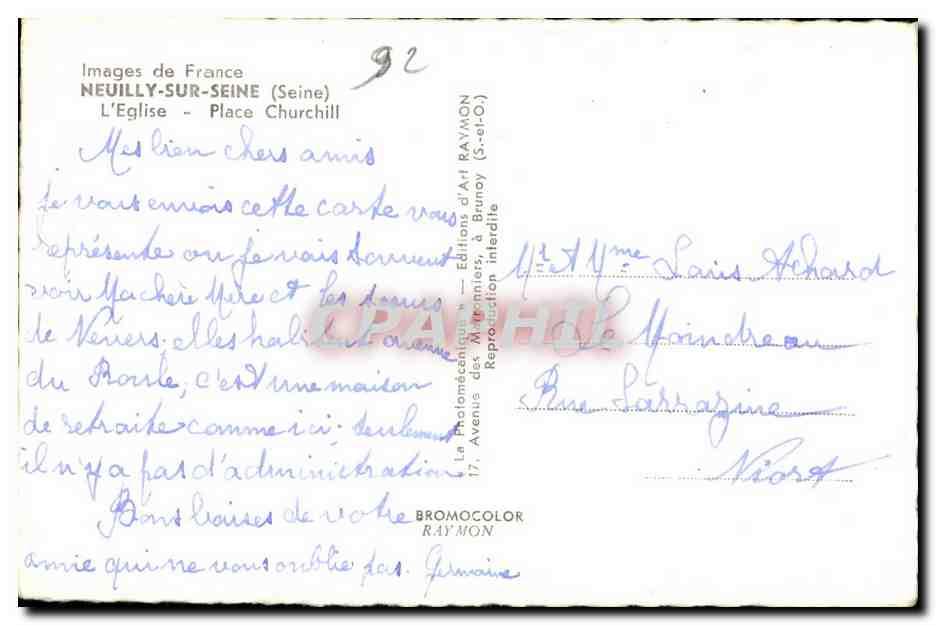 92
Images de France
NEUILLY-SUR-SEINE (Seine)
L'Eglise - Place Churchill
Mes bien chers amis
je vous envois cette carte vous
représente ou je vais souvent
voir Ma chère Mère et les sœurs
de Nevers. elles habitent avenue
du Roule, c'est une maison
de retraite comme ici, seulement
il n'y a pas d'administration
Bons baises de votre
amie qui ne vous oublie pas. Germaine
« La Photomécanique » — Editions d'Art RAYMON
17, Avenue des Marronniers, à Brunoy (S.-et-O.)
Reproduction interdite
BROMOCOLOR
RAYMON
Mr et Mme Louis Achard
Le Moindreau
Rue Sarrazine
Niort
CPAPHIL